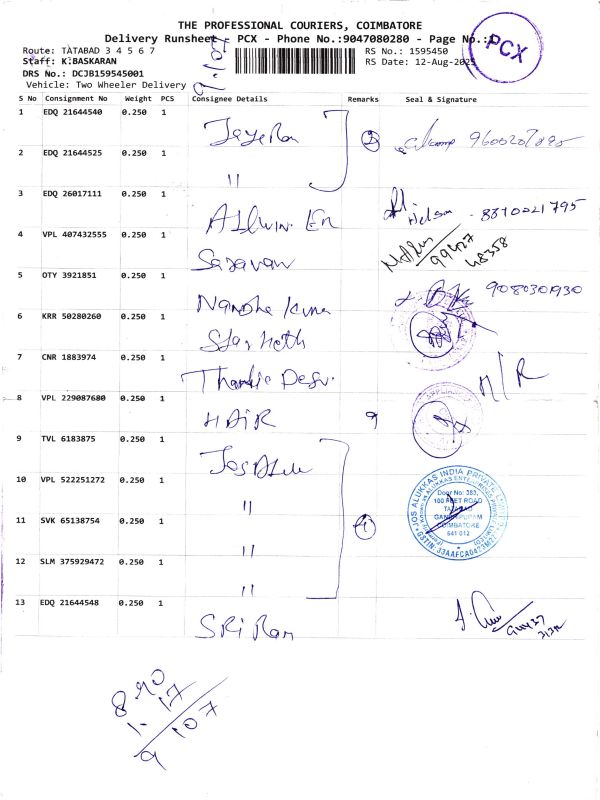 THE PROFESSIONAL COURIERS, COIMBATORE
Delivery Runsheet - PCX - Phone No.:9047080280 - Page No.:
PCX
Route: TATABAD 3 4 5 6 7
RS No.: 1595450
Staff: K.BASKARAN
RS Date: 12-Aug-2025
DRS No.: DCJB159545001
Vehicle: Two Wheeler Delivery
S No Consignment No Weight PCS Consignee Details Remarks Seal & Signature
1 EDQ 21644540 0.250 1 2 9600207895
2 EDQ 21644525 0.250 1 "
3 EDQ 26017111 0.250 1 Nelson - 8870021795
4 VPL 407432555 0.250 1 Saravan 99427 48358
5 OTY 3921851 0.250 1 9080301930
6 KRR 50280260 0.250 1
7 CNR 1883974 0.250 1 N/R
8 VPL 229087680 0.250 1 HAIR 9
9 TVL 6183875 0.250 1
10 VPL 522251272 0.250 1 "
11 SVK 65138754 0.250 1 " 4
12 SLM 375929472 0.250 1 "
JOS ALUKKAS INDIA PRIVATE LIMITED
Door No: 383,
100 FEET ROAD
TATABAD
GANDHIPURAM
COIMBATORE
641 012
13 EDQ 21644548 0.250 1 SRi Ram
8 90
1 - 17
9 107